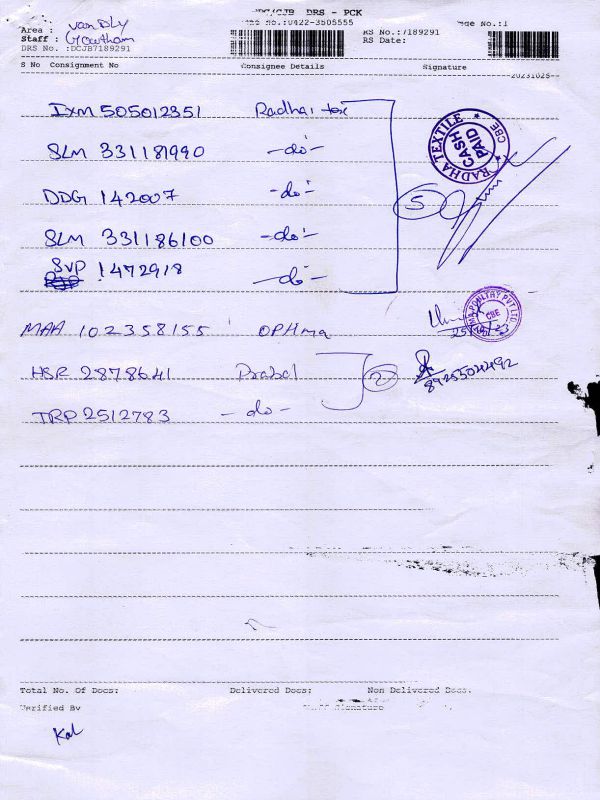 DRS - PCK
Area : van DLY
:0422-3505555
No.:1
Staff : Gowtham
RS No.:7189291
DRS No. :DCJB7189291
RS Date:
S No Consignment No Consignee Details Signature
20231025
IXM 505012351 Radhai tex
SLM 331181990 -do-
DDG 142007 -do-
SLM 331186100 -do-
SVP 1472918 -do-
5
RADHA TEXTILE CBE
CASH
PAID
MAA 102358155 OPHma
POULTRY PVT LTD
CBE
HSR 2878641 Prabal
2
TRP 2512783 -do-
Total No. Of Docs: Delivered Docs: Non Delivered Docs.
Verified By Signature
Kal